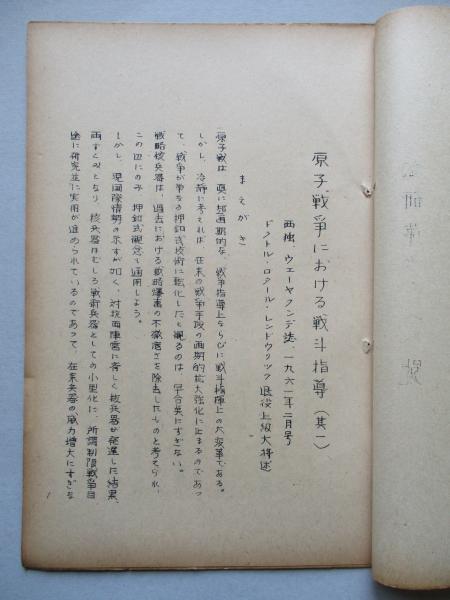 原子戦争における戦斗指導（其一）
西独、ウェーヤクンデ誌、一九六一年二月号
ドクトル・ロタール・レンドウリック退役上級大将述
まえがき
原子戦は、真に超画期的な、戦争指導上ならびに戦斗指揮上の大変革である。
しかし、冷静に考えれば、在来の戦争手段の画期的拡大強化に止まるのであっ
て、戦争が単なる押釦式技術に転化したと観るのは、早合点にすぎない。
戦略核兵器は、過去における戦略爆撃の不徹底さを除去したものと考えられ、
この面にのみ、押釦式観念を適用しよう。
しかし、現国際情勢の示すが如く、対抗両陣営に等しく核兵器が発達した結果、
両すくみとなり、核兵器はむしろ戦術兵器としての小型化に、所謂制限戦争目
途に研究並に実用が進められているのであって、在来兵器の威力増大にすぎな